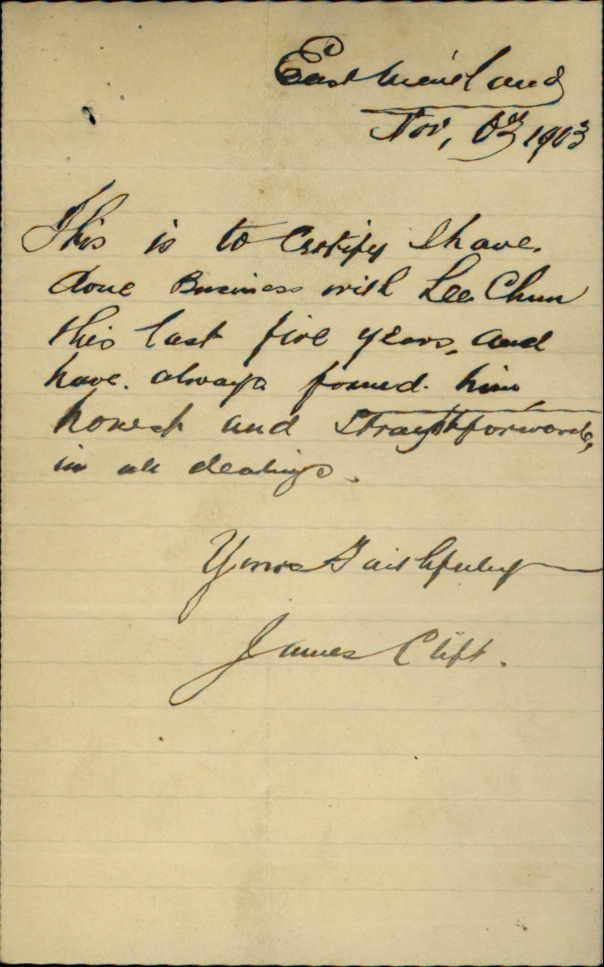 East Maitland
Nov, 6th 1903
This is to Certify I have
done Business with Lee Chun
this last five years, and
have always found him
honest and Straightforward,
in all dealings.
Yours Faithfully
James Clift.